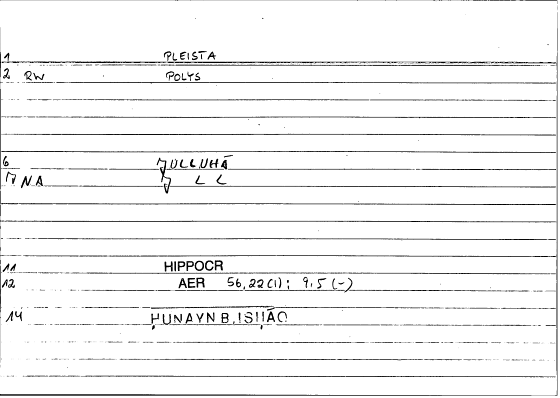 1 PLEISTA
2 RW POLYS
6 ǦULLUHĀ
7 NA Ǧ L L
11 HIPPOCR
12 AER 56,22(1); 9,5(-)
14 ḤUNAYN B. ISḤĀQ